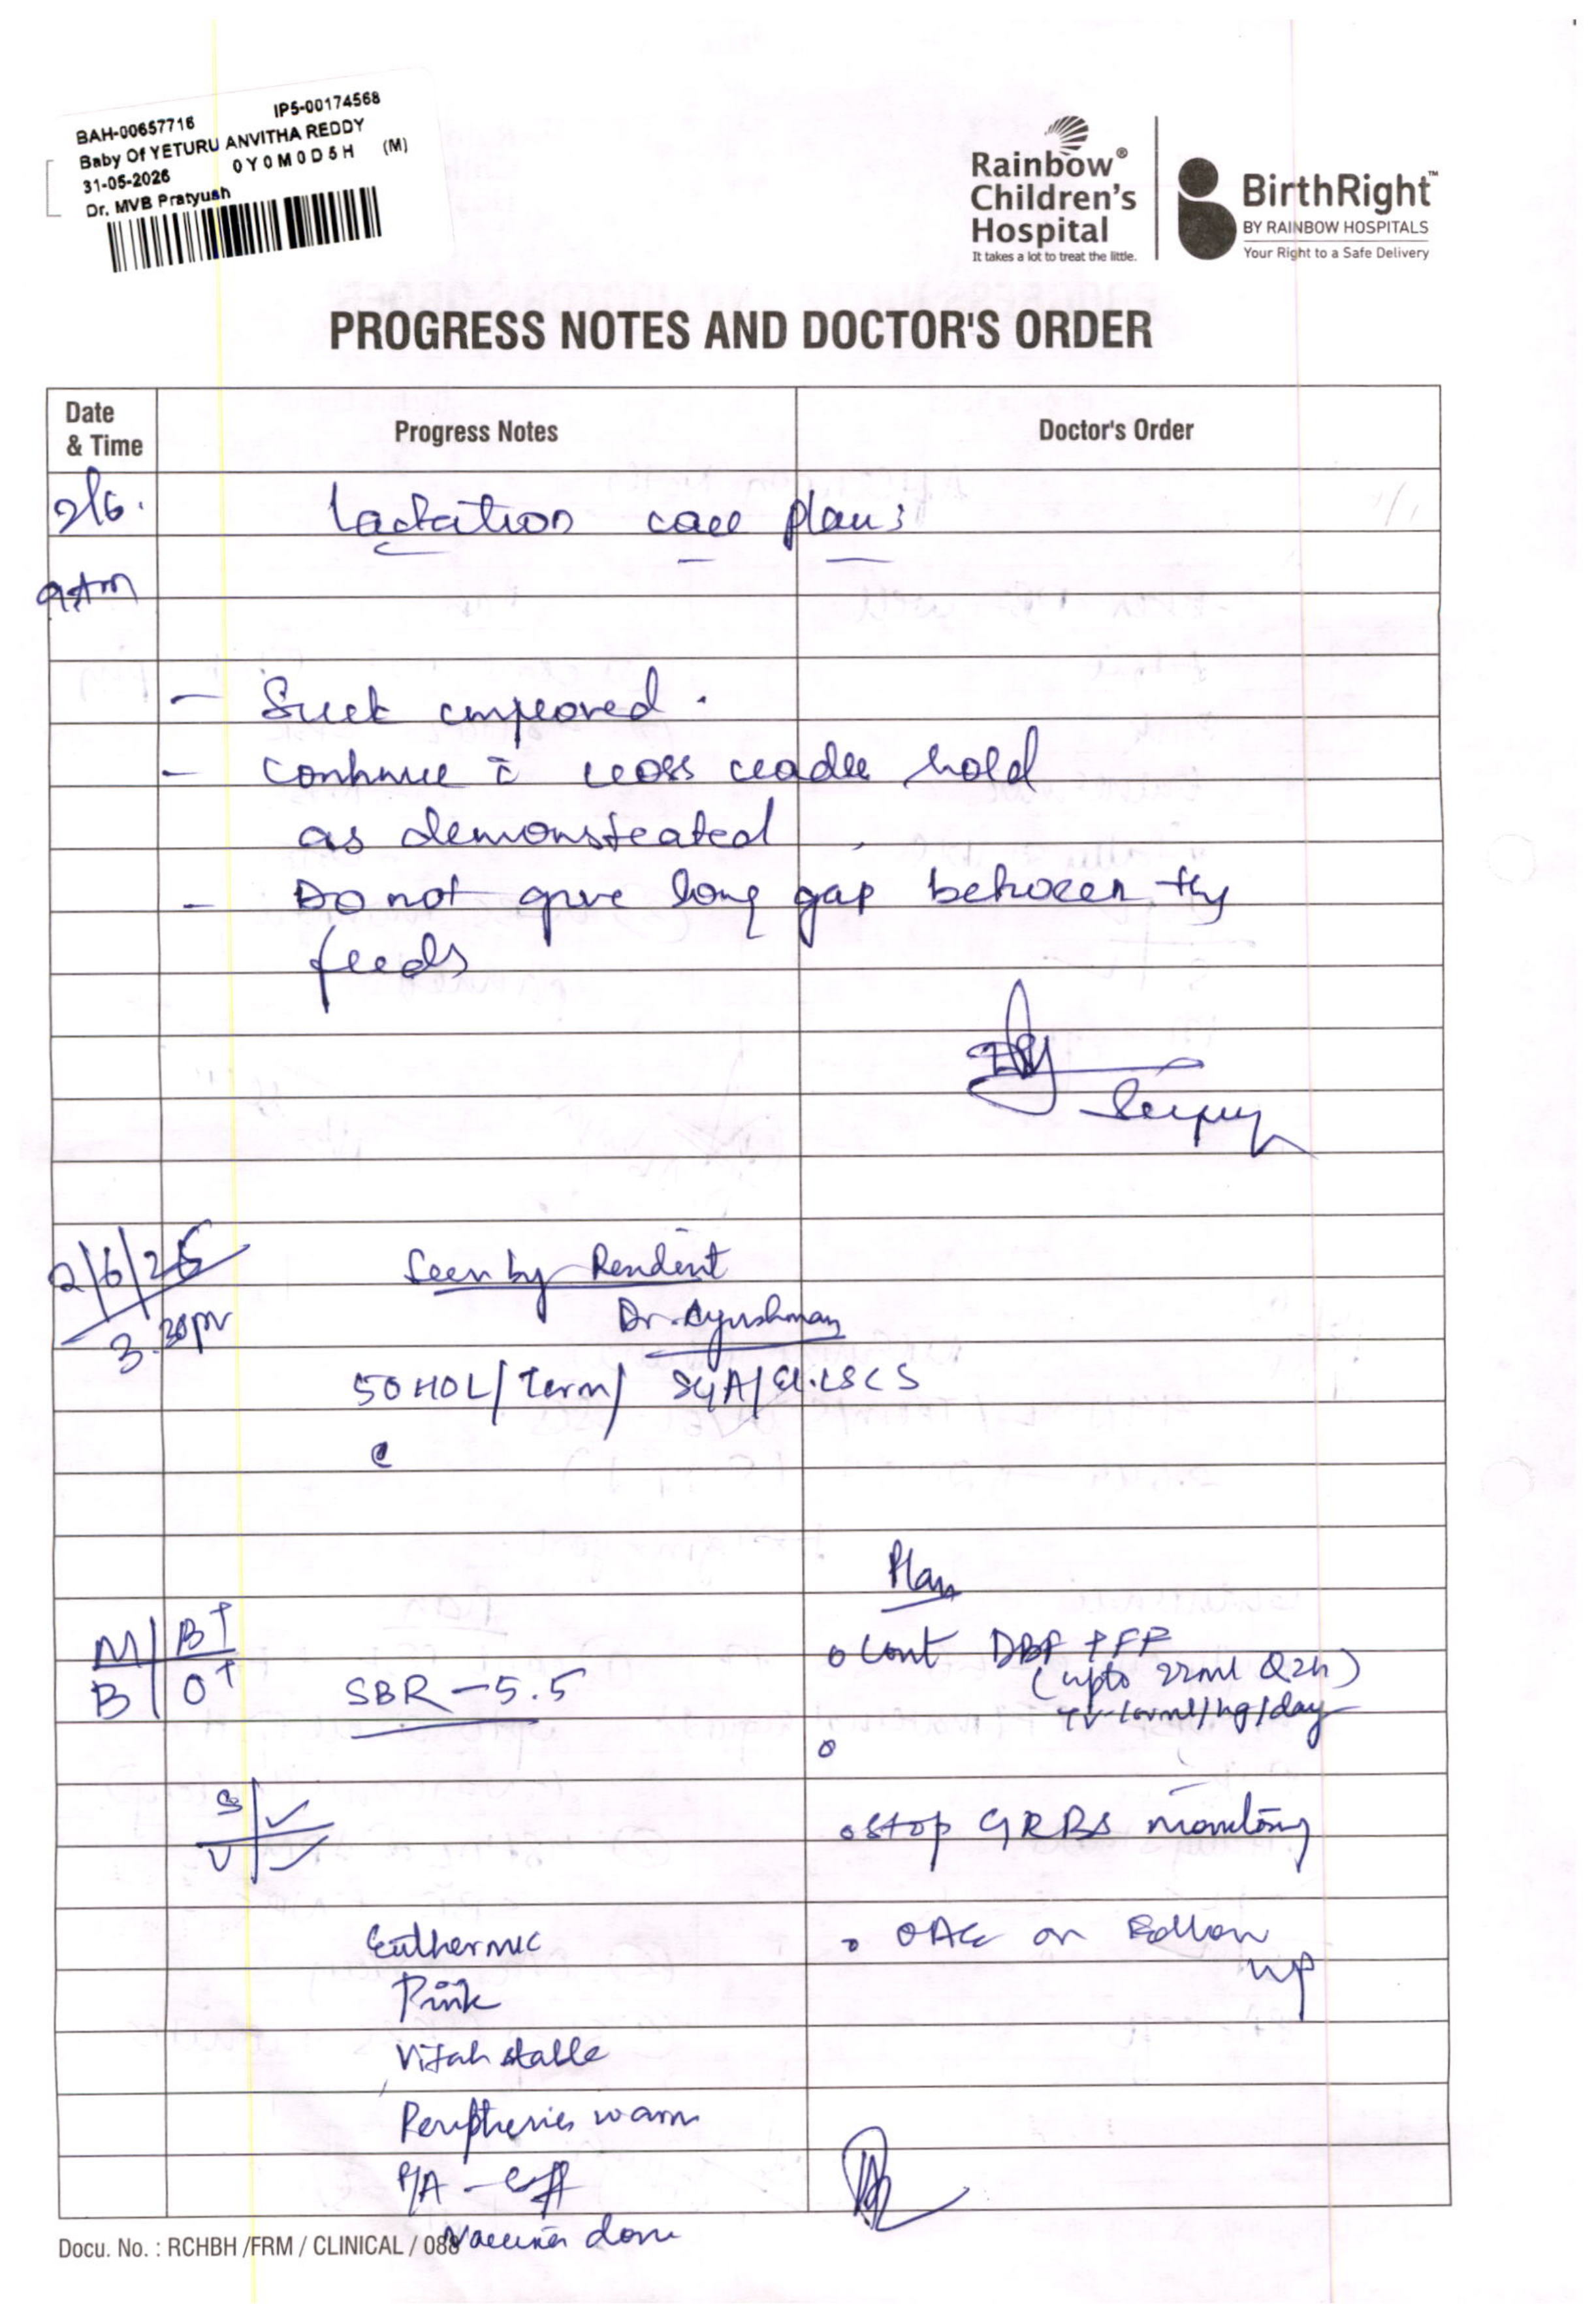 BAH-00657716 IP5-00174568
Baby Of YETURU ANVITHA REDDY
31-05-2026 0Y0M0D5H (M)
Dr. MVB Pratyush
Rainbow®
Children's
Hospital
It takes a lot to treat the little.
BirthRight™
BY RAINBOW HOSPITALS
Your Right to a Safe Delivery
PROGRESS NOTES AND DOCTOR'S ORDER
Date
& Time
Progress Notes
Doctor's Order
2/6. Lactation care plan:
9Am
- Suck improved.
- Continue c̄ cross cradle hold
as demonstrated
- Do not give long gap between the
feeds
2/6/26
3.30pm
Seen by Resident
Dr. Ayushman
50 HOL/Term/ SGA/El.LSCS
Plan
M B+
B O+
SBR - 5.5
o Cont DBF + FF
(upto 22ml Q2h)
ml/kg/day
S ✓
U ✓
o Stop GRBS monitoring
Euthermic
o OAE on Follow
up
Pink
Vitals stable
Peripheries warm
P/A - soft
Docu. No. : RCHBH /FRM / CLINICAL / 088
Vaccines done